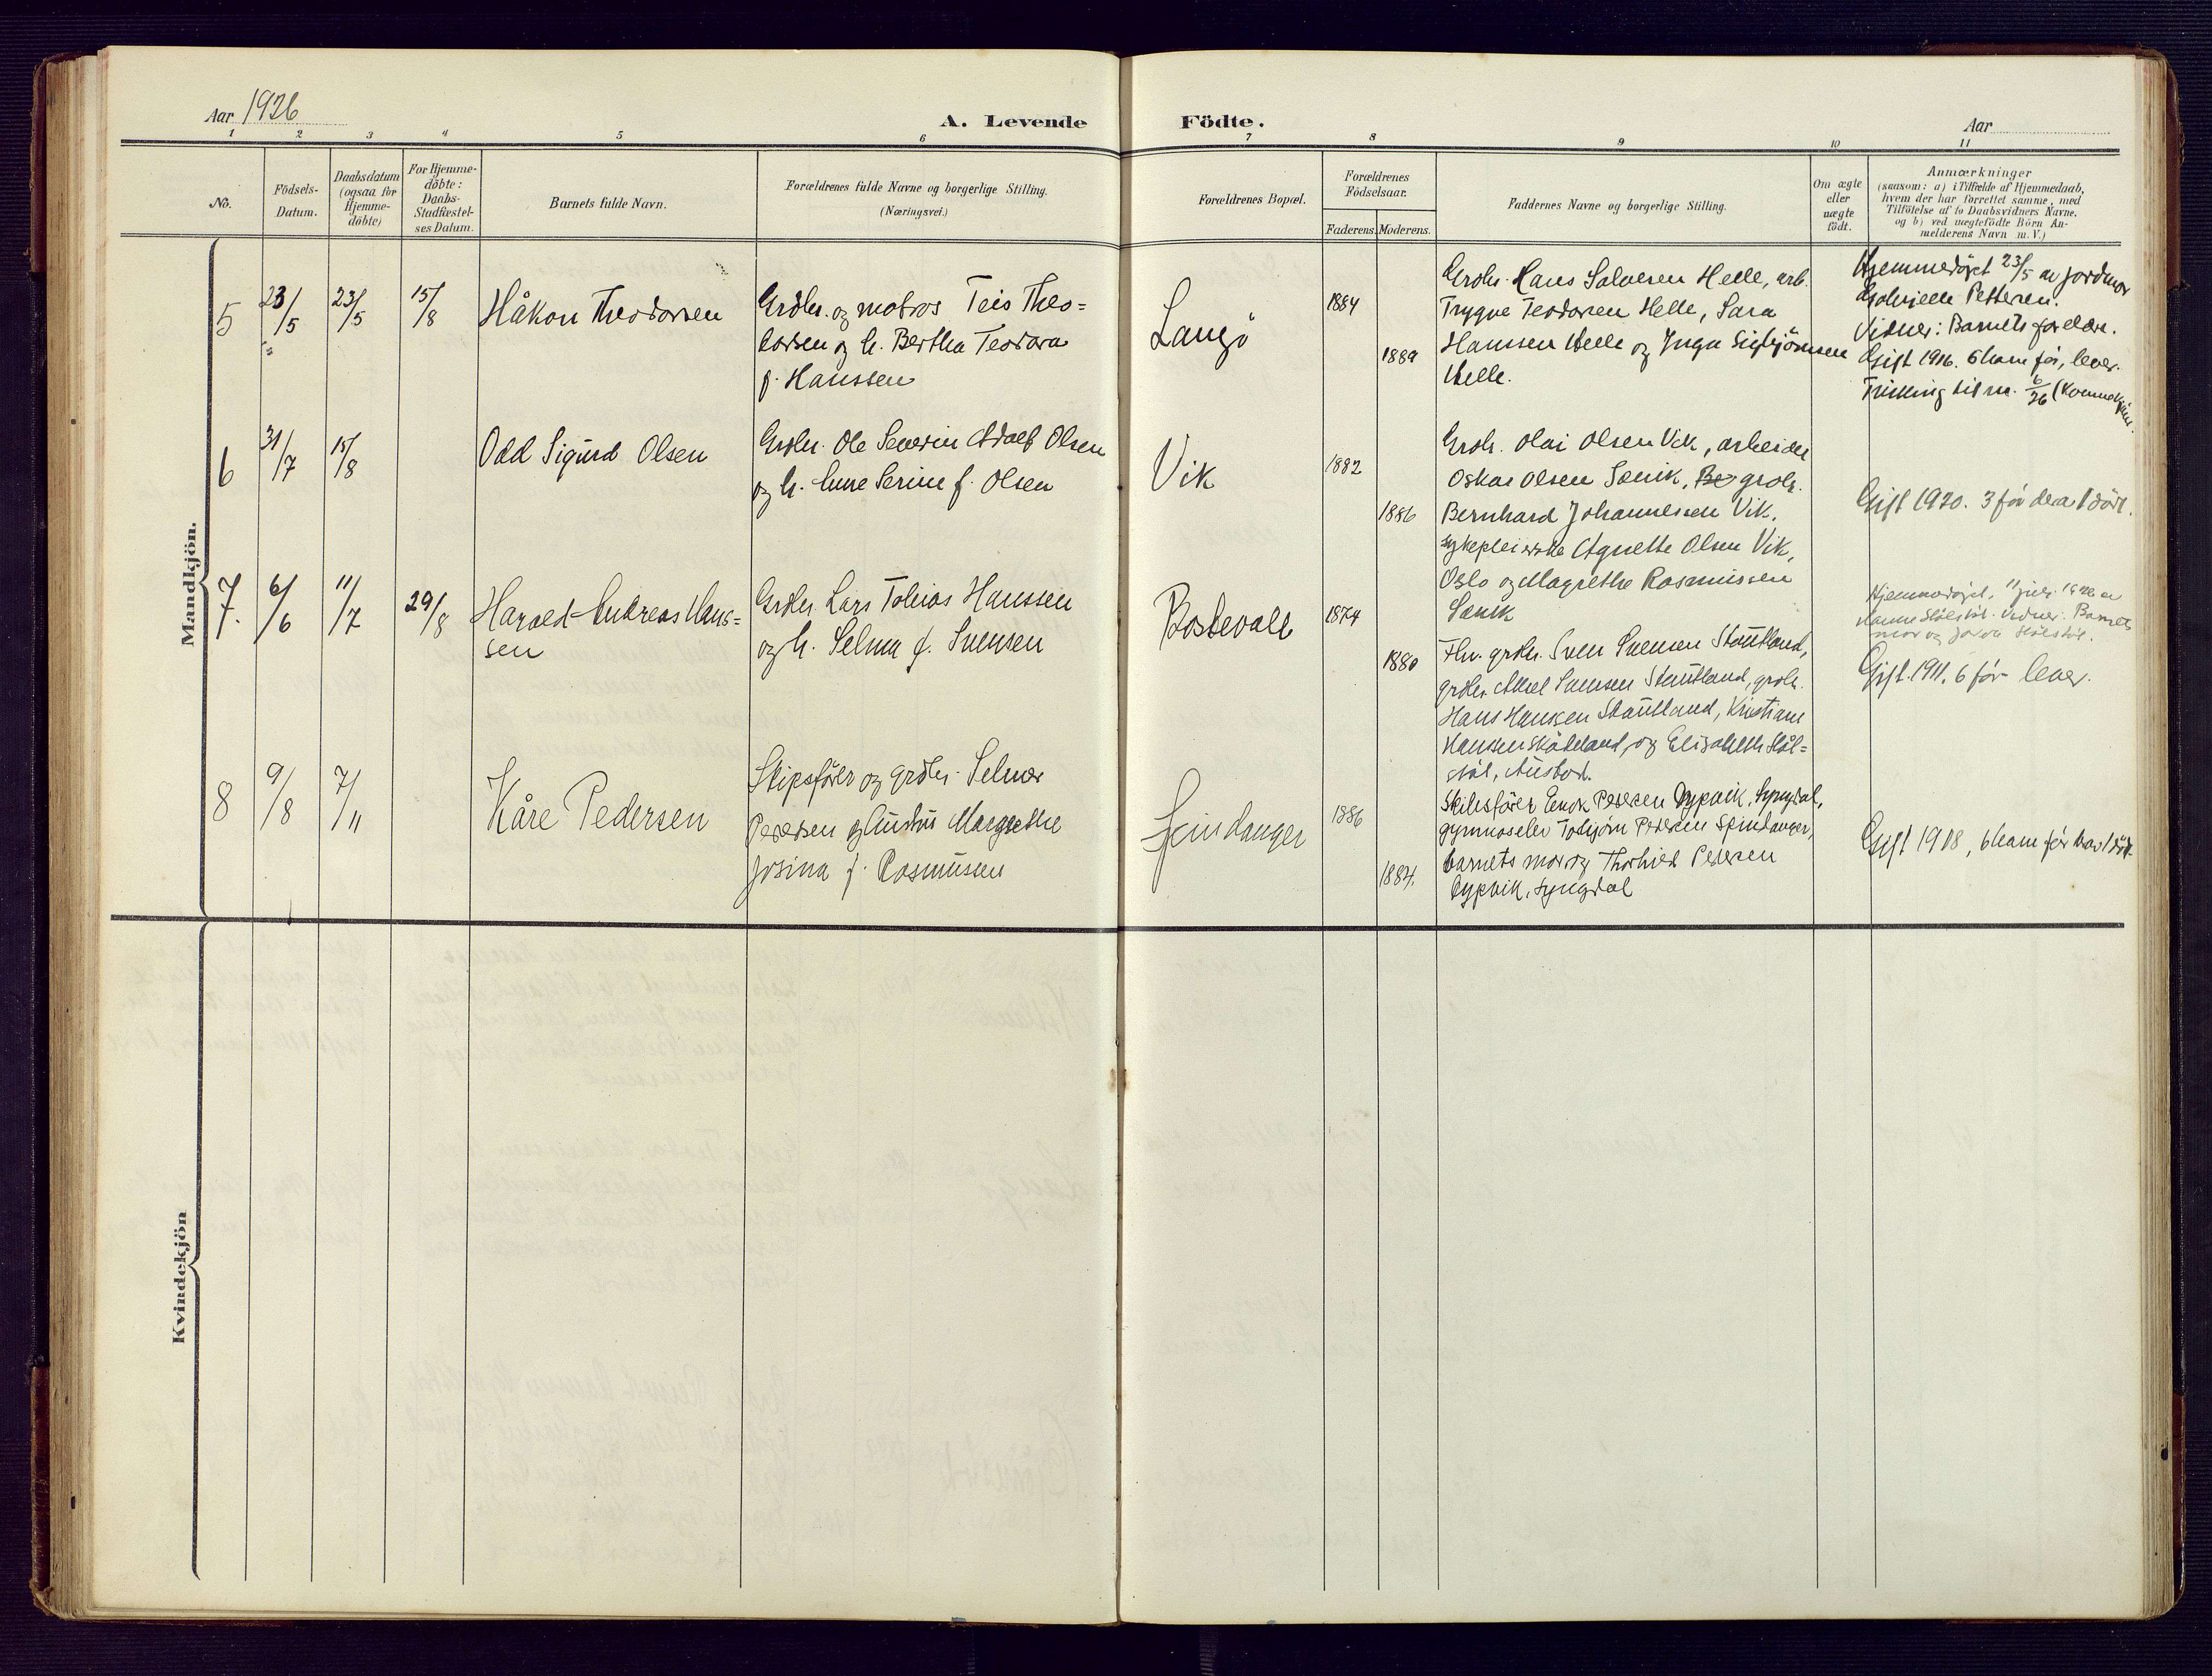 Aar 1926
A. Levende Födte.
Aar
1 2 3 4 5 6 7 8 9 10 11
No.
Födsels-
Datum.
Daabsdatum
(ogsaa for
Hjemme-
döbte)
For Hjemme-
döbte:
Daabs-
Stadfæstel-
ses Datum.
Barnets fulde Navn.
Forældrenes fulde Navne og borgerlige Stilling.
(Næringsvei.)
Forældrenes Bopæl.
Forældrenes
Födselsaar.
Faderens. Moderens.
Faddernes Navne og borgerlige Stilling.
Om ægte
eller
uægte
födt.
Anmærkninger
(saasom: a) i Tilfælde af Hjemmedaab,
hvem der har forrettet samme, med
Tilföielse af to Daabsvidners Navne,
og b) ved uægtefödte Börn An-
melderens Navn m. V.)
Mandkjön.
5 23/5 23/5 15/8
Håkon Theodorsen
Grdbr. og matros Teis Theo-
dorsen og h. Bertha Teodora
f. Hanssen
Langö
1884
1889
Grdbr. Hans Salvesen Helle, arb.
Trygve Teodorsen Helle, Sara
Hanssen Helle og Inga Sigbjörnsen
Helle.
Hjemmedöpt 23/5 av jordmor
Gabrielle Pettersen.
Vidner: Barnets foreldre.
Gift 1916. 6 barn för, lever.
6 31/7 15/8
Odd Sigurd Olsen
Grdbr. Ole Severin Adolf Olsen
og h. Anne Serine f. Olsen
Vik
1882
1886
Grdb. Olai Olsen Vik, arbeider
Oskar Olsen Sænik, Be grdb.
Bernhard Johannessen Vik,
sykepleierske Agnethe Olsen Vik,
Oslo og Magrethe Rasmussen
Sænik
Gift 1920. 3 för derav 1 död.
7. 6/6 11/7 29/8
Harald Andreas Hans-
sen
Grdbr. Lars Tobias Hanssen
og h. Selma f. Svensen
Bostevoll
1874
1880
Fhv. grdbr. Sven Svensen Stautland,
grdbr. Aksel Svensen Stautland, grdb.
Hans Hanssen Stautland, Kristiane
Hanssen Skådeland, og Elisabeth Stöl-
stöl, Ausbod.
Hjemmedöpt, 11 juli 1926 av
Hanne Stölstöl. Vidner: Barnets
mor og Stölstöl.
Gift. 1911. 6 för lever.
8 9/8 7/11
Kåre Pedersen
Skipsförer og grdbr. Selmer
Pedersen og hustru Margrethe
Josina f. Rasmussen
Spindanger
1886
1884.
Skibsförer Enok Pedersen Dypvik, Lyngdal,
gymnaselev Torbjörn Pedersen Spindanger,
barnets mor og Thorhild Pedersen
Dypvik, Lyngdal
Gift 1908, 6 barn för hvorav 1 död.
Kvindekjön